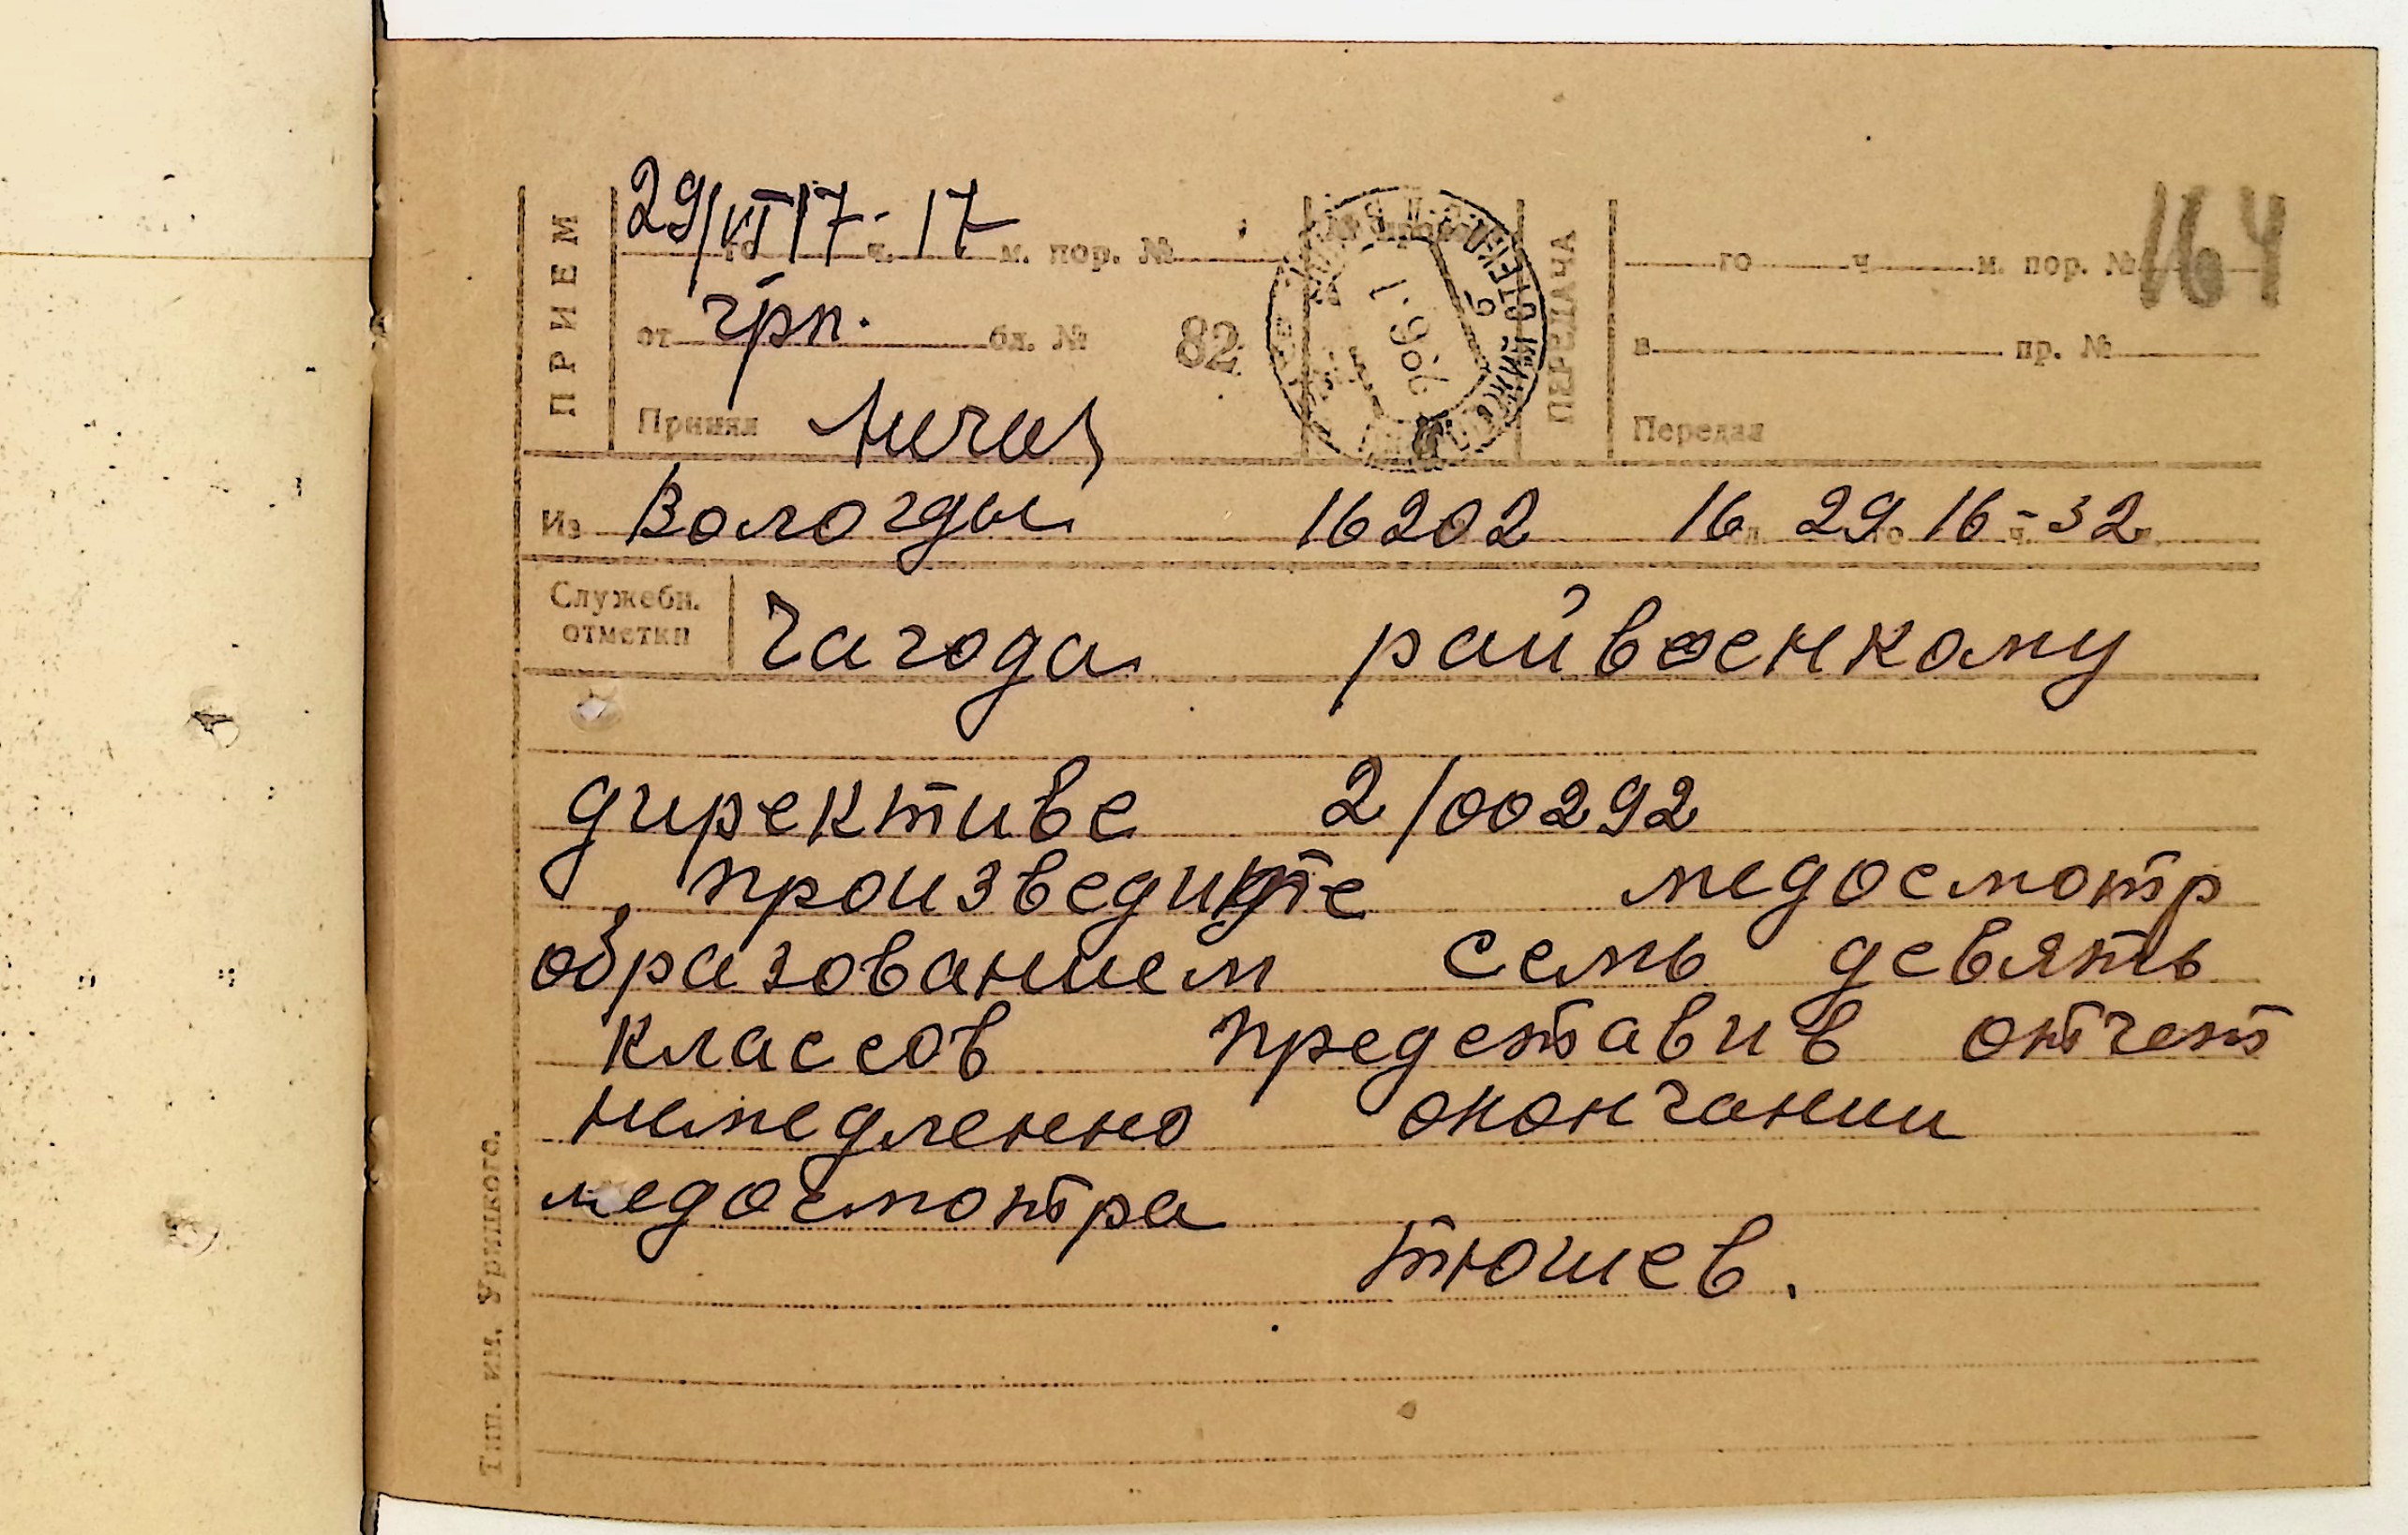 ПРИЕМ
29/VI 17-17
го ч. м. пор. №
164
го ч м. пор. №
от грп. бл. № 82
в пр. №
ПЕРЕДАЧА
Принял
Передал
Из Вологды 16202 16 сл. 29 го 16 ч. -32 м.
Служебн.
отметки
Чагода райвоенкому
директиве 2/00292
произведите медосмотр
образованием семь девять
классов представив отчет
немедленно окончании
медосмотра
Тюшев.
Тип. им. Урицкого.